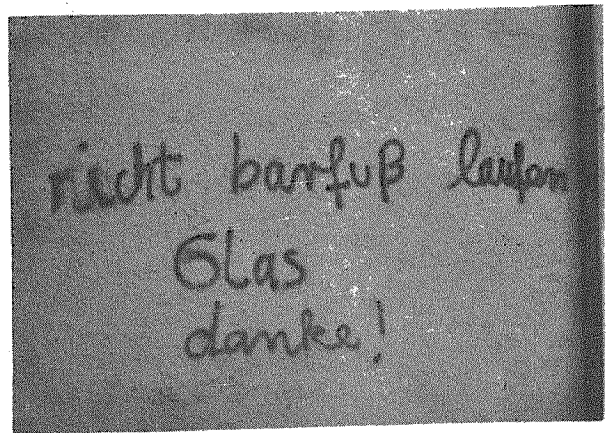 nicht barfuß laufen
Glas
danke!